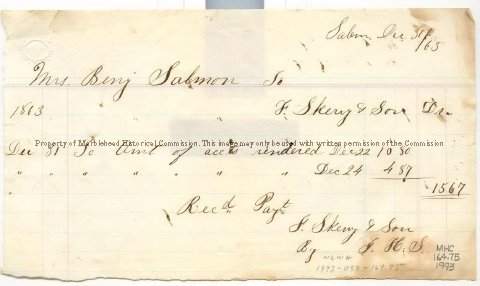 Salem Dec 31/65
Mrs. Benj Salmon To
F. Skerry & Son Dr
Property of Marblehead Historical Commission. This image may only be used with written permission of the Commission
Dec 31 To Amt of acct rendered Dec 22 10 80
" " " " " " Dec 24 4 87
15 67
Rec'd Payt
F. Skerry & Son
By J. H. S.
MHC
164.75
1993
1993-037-164.75